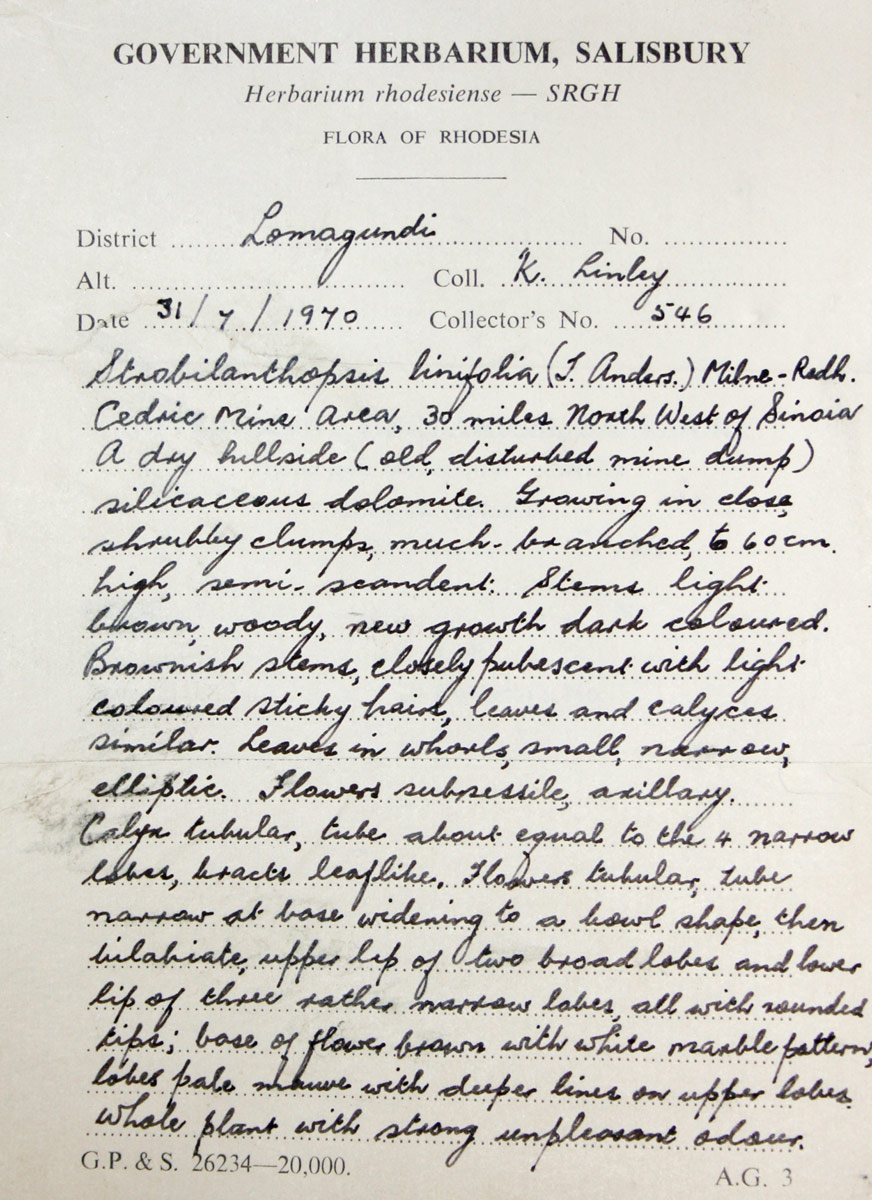 GOVERNMENT HERBARIUM, SALISBURY
Herbarium rhodesiense — SRGH
FLORA OF RHODESIA
District Lomagundi No.
Alt. Coll. K. Linley
Date 31/7/1970 Collector's No. 546
Strobilanthopsis linifolia (T. Anders.) Milne-Redh.
Cedric Mine Area, 30 miles North West of Sinoia
A dry hillside (old, disturbed mine dump)
silicaceous dolomite. Growing in close,
shrubby clumps, much-branched, to 60cm.
high, semi-scandent. Stems light
brown, woody, new growth dark coloured.
Brownish stems, closely pubescent with light
coloured sticky hairs, leaves and calyces
similar. Leaves in whorls, small, narrow,
elliptic. Flowers subsessile, axillary.
Calyx tubular, tube about equal to the 4 narrow
lobes, bracts leaflike. Flowers tubular, tube
narrow at base widening to a bowl shape, then
bilabiate, upper lip of two broad lobes and lower
lip of three rather narrow lobes, all with rounded
tips; base of flower brown with white marble pattern,
lobes pale mauve with deeper lines on upper lobes.
Whole plant with strong unpleasant odour.
G.P. & S. 26234—20,000.
A.G. 3